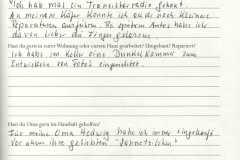 Ich hab mal ein Transistorradio gebaut.
An meinem Käfer konnte ich auch noch kleinere
Reparaturen ausführen. An späteren Autos habe ich
davon lieber die Finger gelassen.
Hast du gern in eurer Wohnung oder eurem Haus gearbeitet? Umgebaut? Repariert?
Ich habe im Keller eine Dunkelkammer zum
Entwickeln von Fotos eingerichtet.
Hast du Oma gern im Haushalt geholfen?
Für meine Oma Hedwig habe ich immer eingekauft.
Vor allem ihre geliebten "Sahnetrüllen"